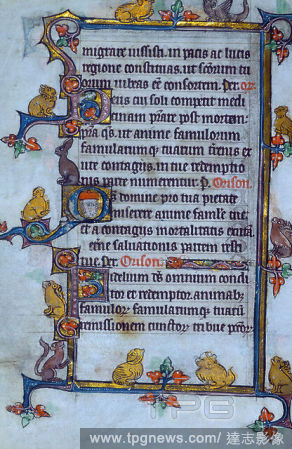 migrare iussisti. in pacis ac lucis
regione constituas. ut scōrum tu
orum iubeas eē consortem. Per
eus cui soli competit medi
cinam prare post mortem.
pra q̄s. ut anime famulorum
famularumq; tuarum terrenis ex
ute contagiis. in tue redemptio
nis parte numerentur. p. Orison.
s domine pro tua pietate
miserere anime famle tue
et a contagiis mortalitatis exu
eterne saluationis partem resti
tue. Per. Orison.
idelium ds omnium condi
tor et redemptor. animab;
famulor. famularumq; tuarum
remissionem cunctor. tribue pctor.
TPG
www.tpgnews.com / 達志影像